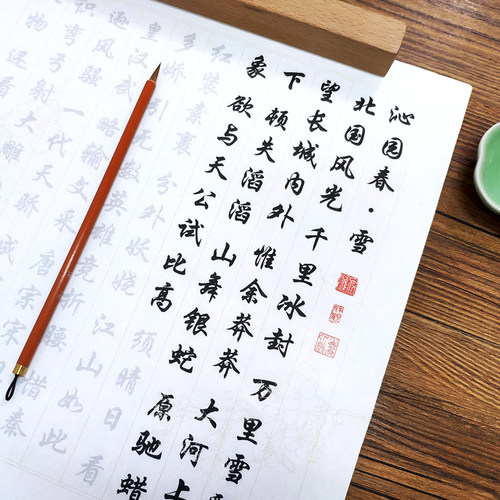 沁园春·雪
北国风光 千里冰封 万里雪
望长城内外 惟余莽莽 大河上
下 顿失滔滔 山舞银蛇 原驰蜡
象 欲与天公试比高 须晴日 看
红装素裹 分外妖娆 江山如此
多娇 引无数英雄竞 惜秦
皇汉武 略输文采 唐宗宋
逊风骚 一代天骄
识弯弓射大雕
物 还看